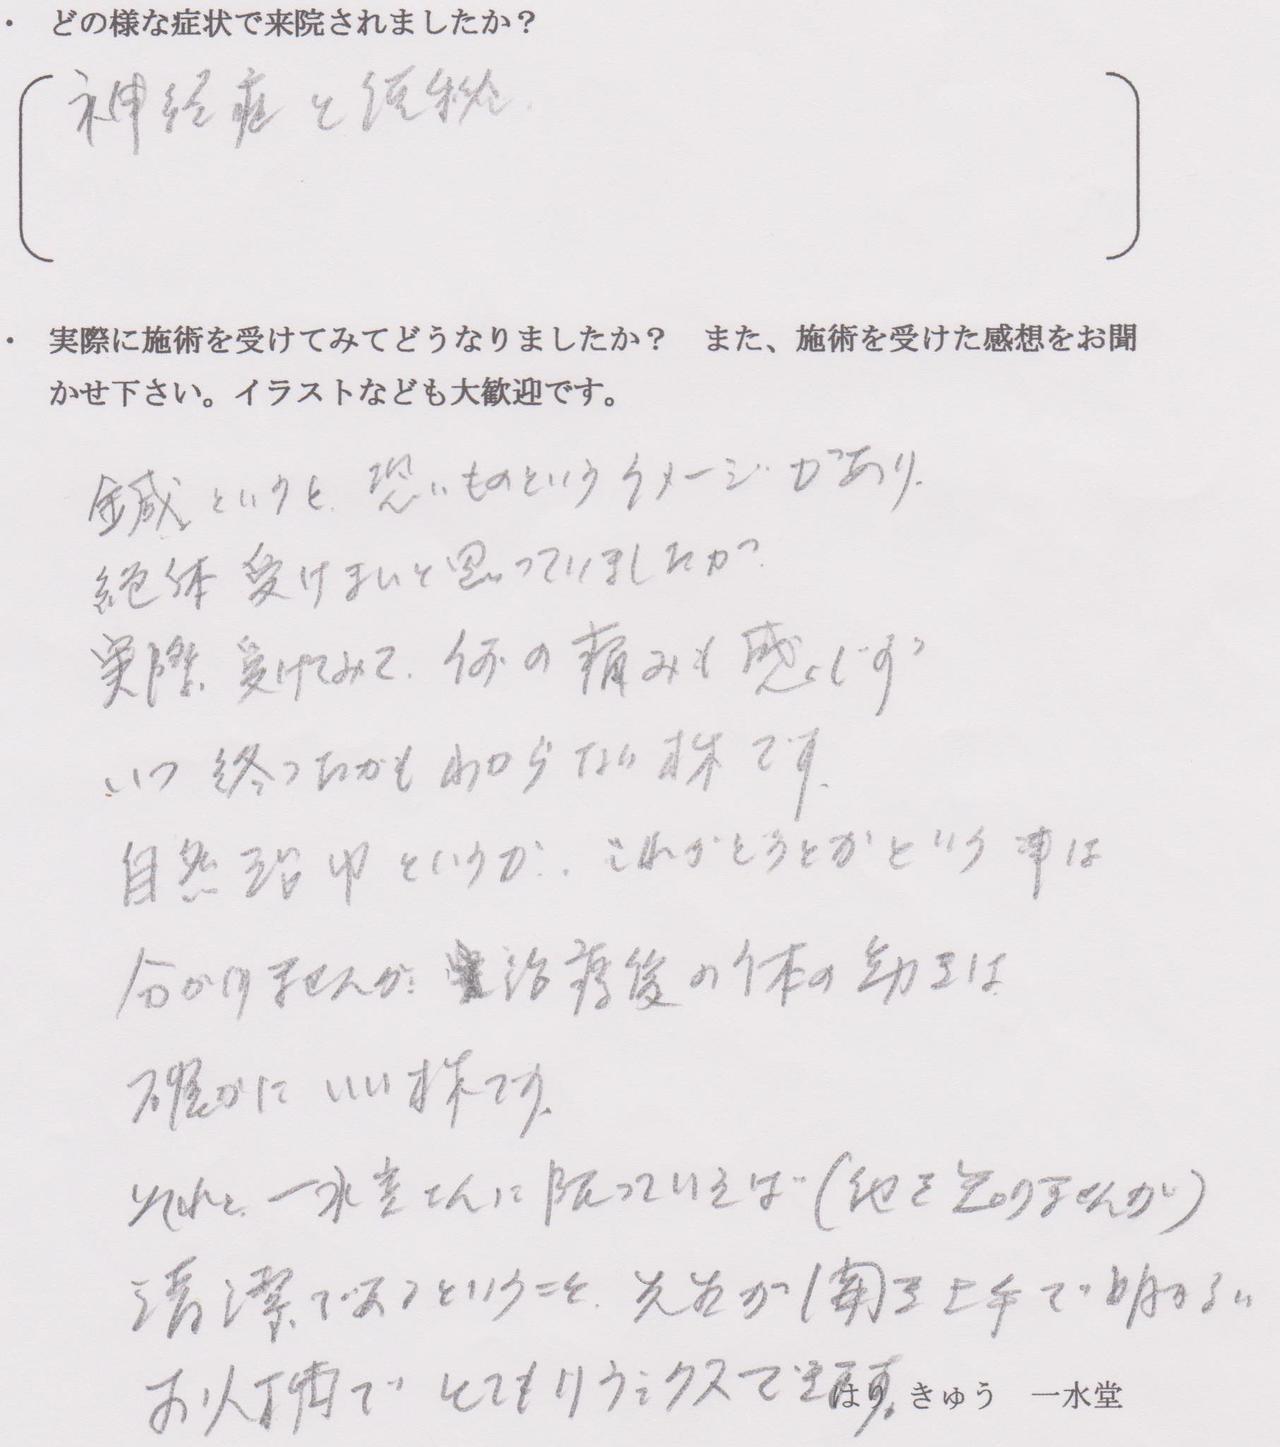 ・ どの様な症状で来院されましたか？
神経症と便秘
・ 実際に施術を受けてみてどうなりましたか？　また、施術を受けた感想をお聞
かせ下さい。イラストなども大歓迎です。
鍼というと、恐いものというイメージがあり、
絶体受けまいと思っていましたが
実際、受けてみて、何の痛みも感じず
いつ終ったかもわからない様です。
自然治ゆというか、これがどうとかという事は
分かりませんが 治療後の体の
確かにいい様です。
それと、一水堂さんに限っていえば（他を知りませんが）
清潔であるということと、先生が 上手で明かるい
お人柄で とてもリラックスできます。
はり きゅう　一水堂